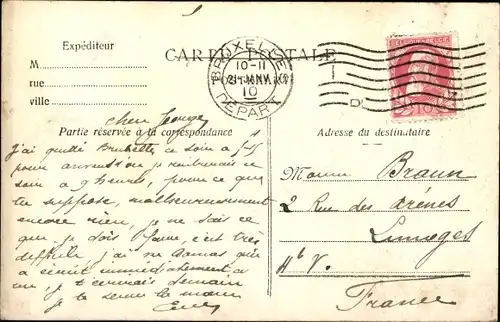 Expéditeur
M
rue
ville
CARTE POSTALE
BRUXELLES
10-11
21 JANV
10
DEPART
BELGIQUE-BELGIË
Partie réservée à la correspondance
Adresse du destinataire
cher George,
j'ai quitté Bruxelles ce soin à 5.15
pour
soir à 9 heures, pense ce que
tu suppose, malheureusement
encore rien, je ne sais ce
que je dois faire, c'est très
difficile, j'ai
a écrire immédiatement à
je t'écrirais demain
je te serre la main
Monsieur Braun
2 Rue des Arènes
Limoges
Hte V.
France